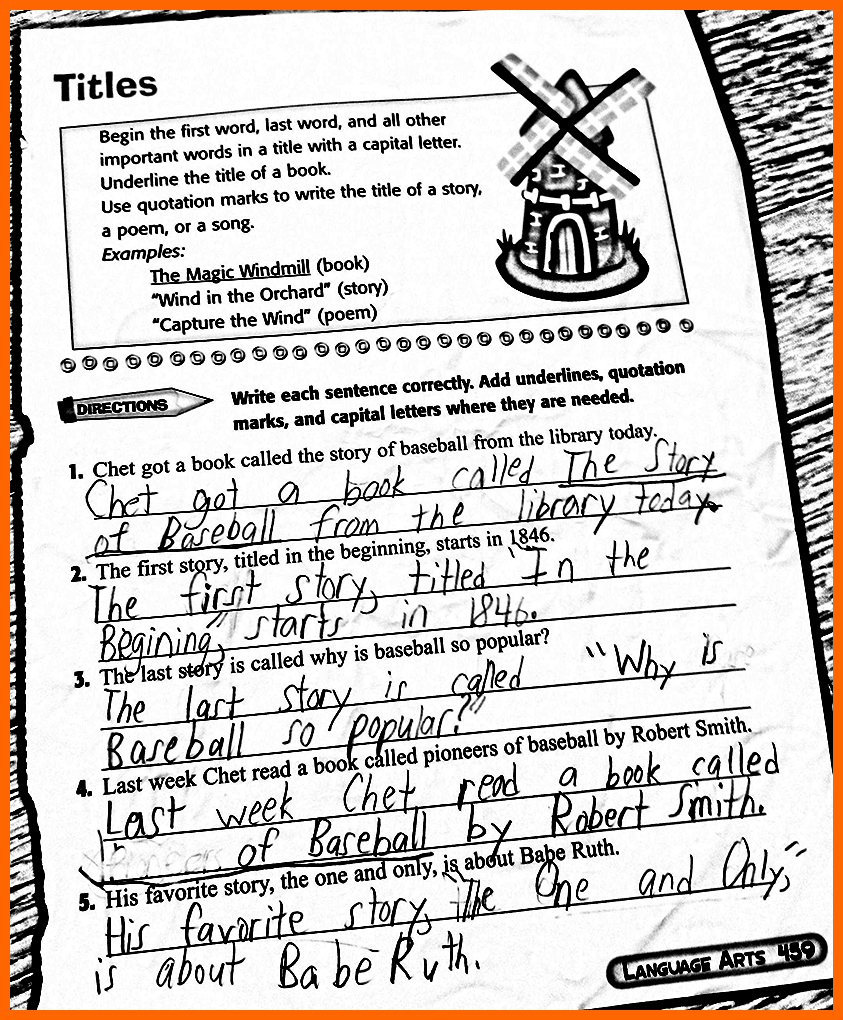 Titles
Begin the first word, last word, and all other
important words in a title with a capital letter.
Underline the title of a book.
Use quotation marks to write the title of a story,
a poem, or a song.
Examples:
The Magic Windmill (book)
"Wind in the Orchard" (story)
"Capture the Wind" (poem)
DIRECTIONS
Write each sentence correctly. Add underlines, quotation
marks, and capital letters where they are needed.
1. Chet got a book called the story of baseball from the library today.
Chet got a book called The Story
of Baseball from the library today.
2. The first story, titled in the beginning, starts in 1846.
The first story, titled "In the
Begining," starts in 1846.
3. The last story is called why is baseball so popular?
The last story is called "Why is
Baseball so popular?"
4. Last week Chet read a book called pioneers of baseball by Robert Smith.
Last week Chet read a book called
of Baseball by Robert Smith.
5. His favorite story, the one and only, is about Babe Ruth.
His favorite story, "The One and Only,"
is about Babe Ruth.
LANGUAGE ARTS 459